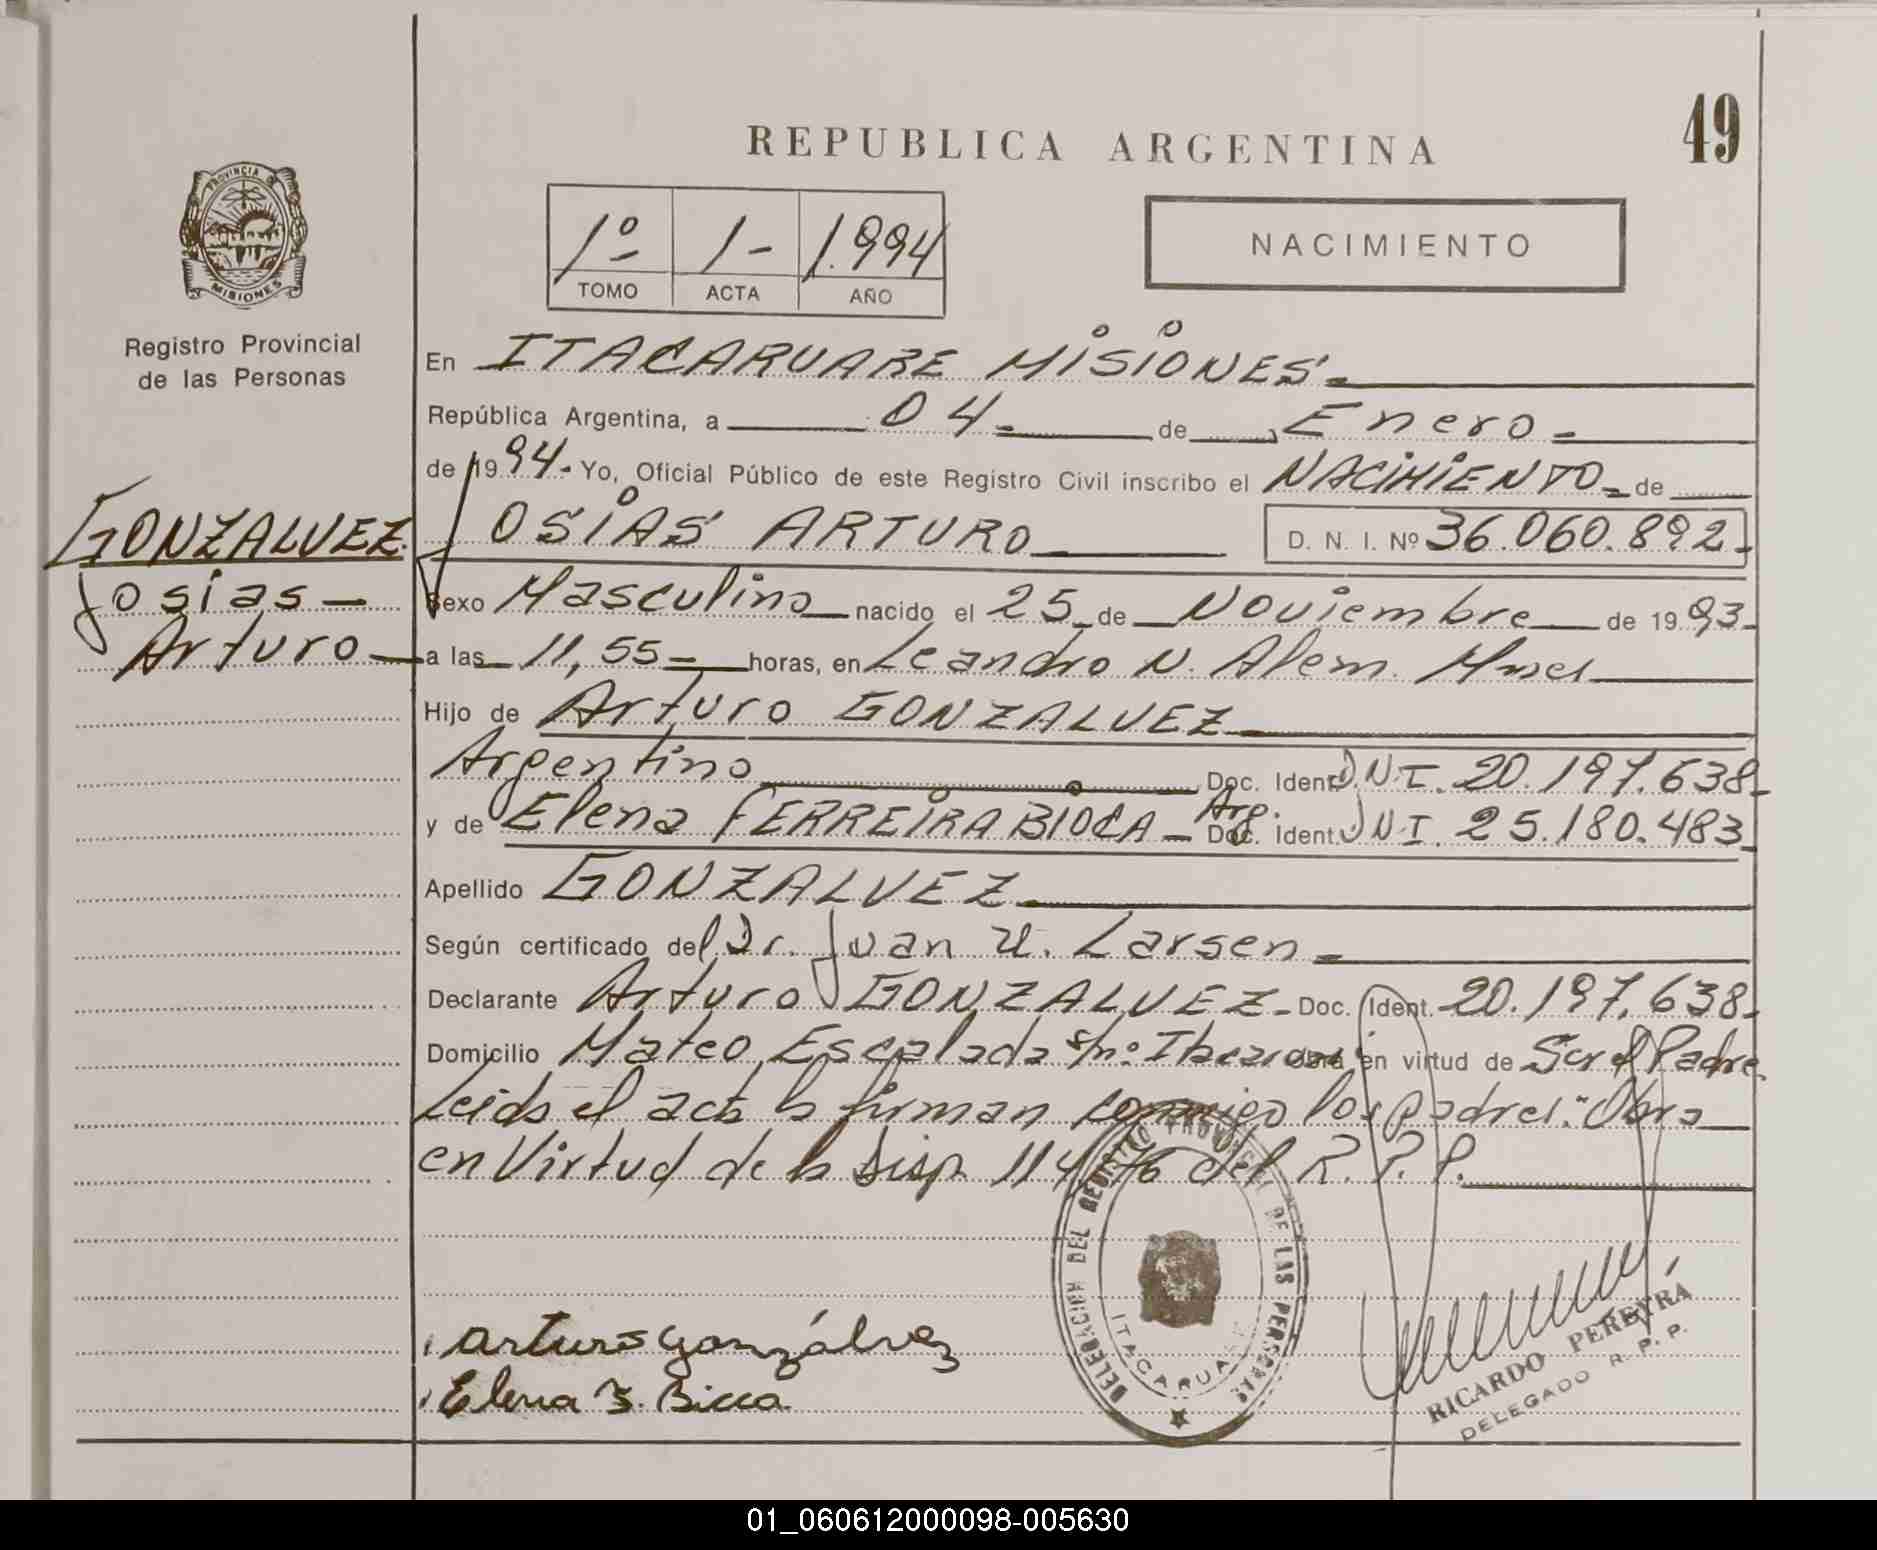 49
REPUBLICA ARGENTINA
1º-
1-
1.994
TOMO
ACTA
AÑO
NACIMIENTO
PROVINCIA DE
MISIONES
Registro Provincial
de las Personas
GONZALVEZ
Josias
Arturo
En ITACARUARE MISIONES.
República Argentina, a 04 de Enero
de 1994. Yo, Oficial Público de este Registro Civil inscribo el NACIMIENTO de
JOSIAS ARTURO D. N. I. Nº 36.060.892
Sexo Masculino nacido el 25 de Noviembre de 1993
a las 11,55 horas, en Leandro N. Alem. Mnes
Hijo de Arturo GONZALVEZ
Argentino Doc. Ident. D.N.I. 20.197.638
y de Elena FERREIRA BIOCA Arg. Doc. Ident. DNI. 25.180.483
Apellido GONZALVEZ
Según certificado del Dr. Juan U. Larsen
Declarante Arturo GONZALVEZ Doc. Ident. 20.197.638
Domicilio Mateo Escalada s/nº Obra en virtud de Ser el Padre
Leida el acta la firman conmigo los padres. "Obra
en Virtud de la Disp. 114/76 del R.P.P.
Arturo Gonzálvez
Elena F. Bicca
DELEGACION DEL REGISTRO PROVINCIAL DE LAS PERSONAS
ITACARUARE
RICARDO PEREYRA
DELEGADO R. P. P.
01_060612000098-005630